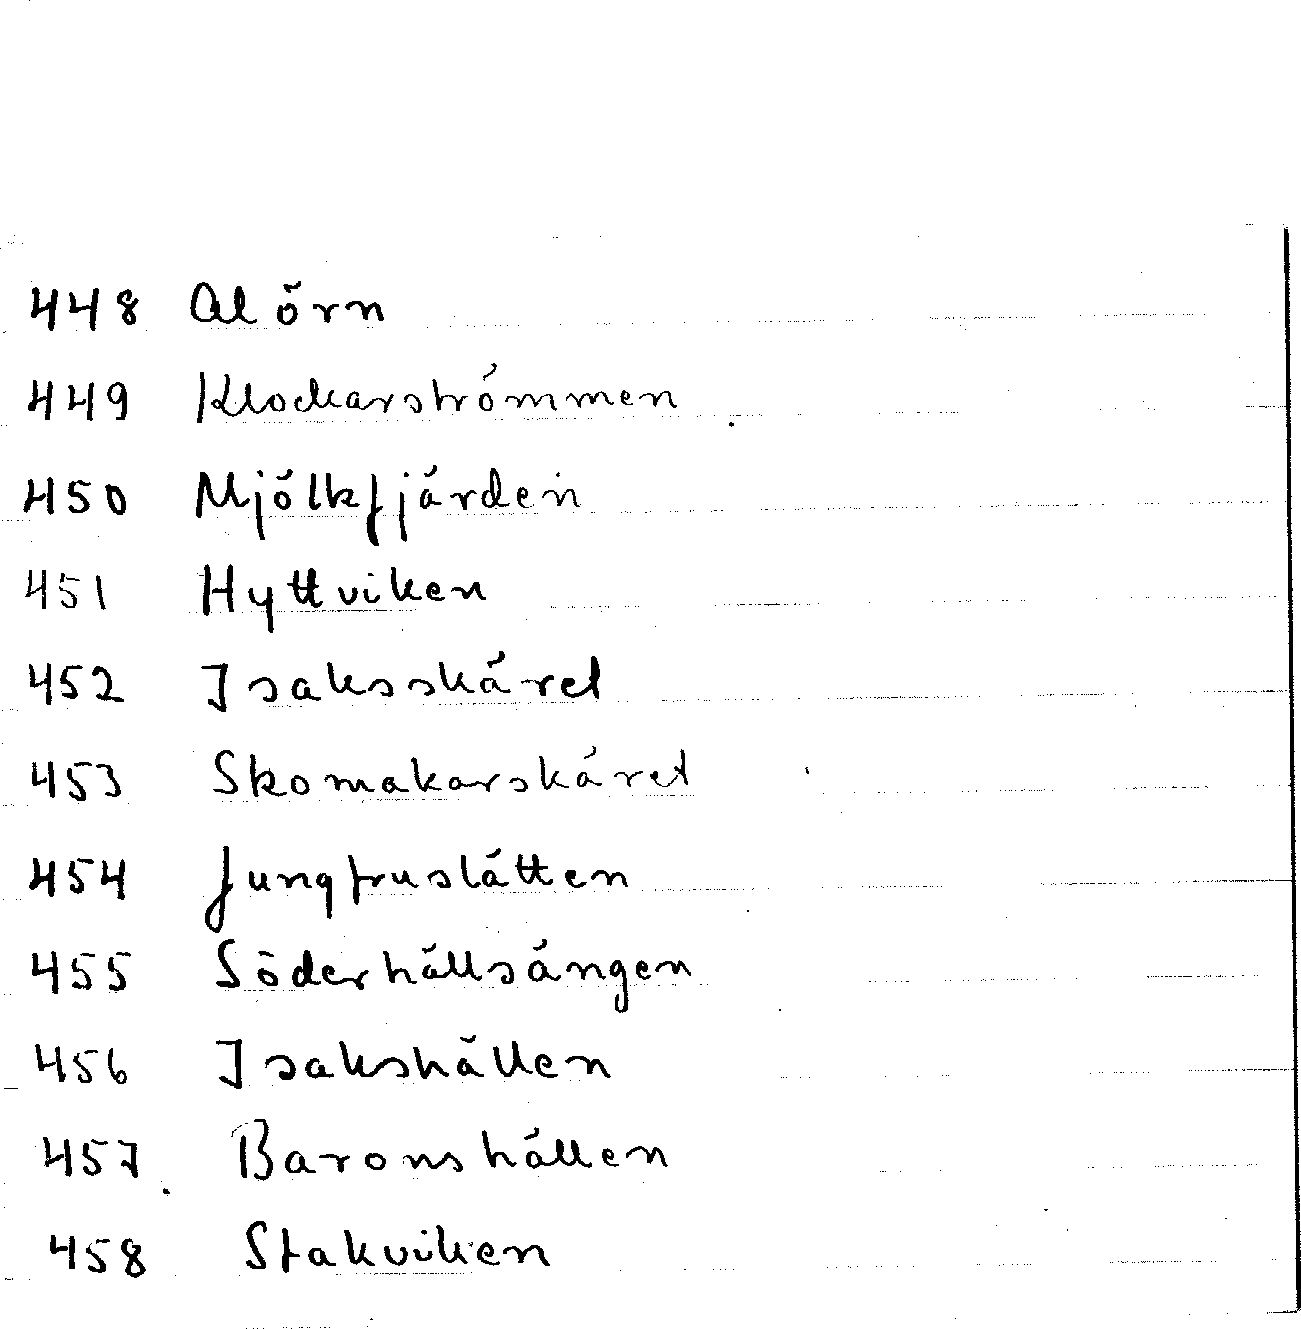 448 Alörn
449 Klockarströmmen
450 Mjölkfjärden
451 Hyttviken
452 Isaksskäret
453 Skomakarskäret
454 Jungfruslätten
455 Söderhällsängen
456 Isakshällen
457 Baronshällen
458 Stakviken